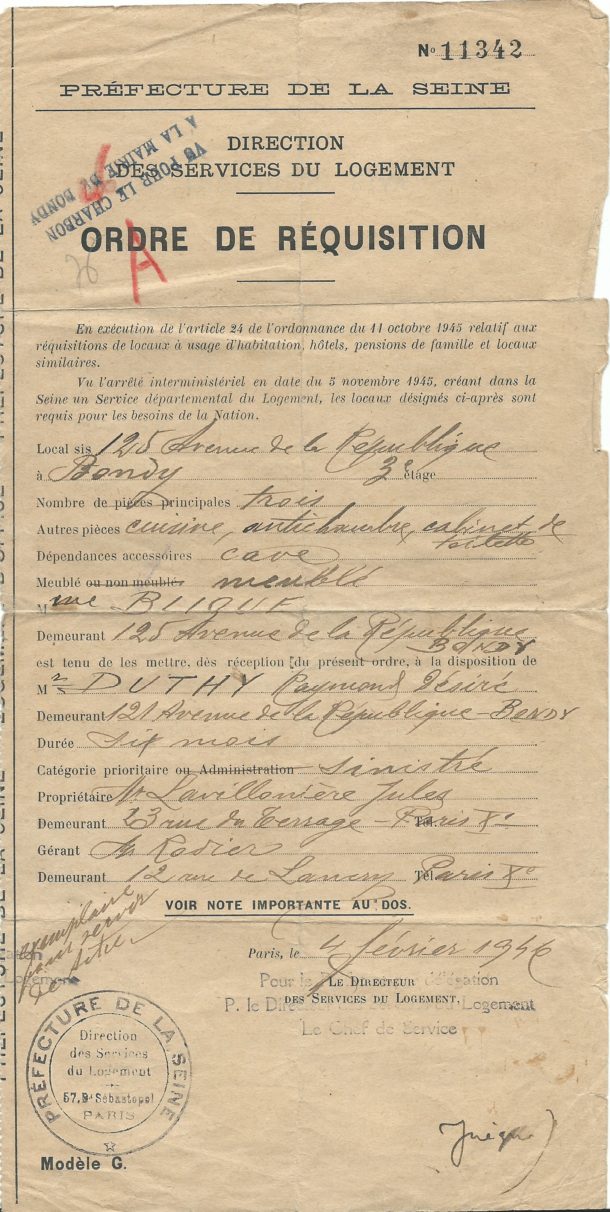 N° 11342
PRÉFECTURE DE LA SEINE
DIRECTION
DES SERVICES DU LOGEMENT
VU POUR LE CHARBON
A LA MAIRIE DE BONDY
ORDRE DE RÉQUISITION
A
En exécution de l'article 24 de l'ordonnance du 11 octobre 1945 relatif aux
réquisitions de locaux à usage d'habitation, hôtels, pensions de famille et locaux
similaires.
Vu l'arrêté interministériel en date du 5 novembre 1945, créant dans la
Seine un Service départemental du Logement, les locaux désignés ci-après sont
requis pour les besoins de la Nation.
Local sis 125 Avenue de la République
à Bondy 3e étage
Nombre de pièces principales trois
Autres pièces cuisine, antichambre, cabinet de
toilette
Dépendances accessoires cave
Meublé ou non meublé meublé
Mme
Demeurant 125 Avenue de la République
BONDY
est tenu de les mettre, dès réception du présent ordre, à la disposition de
Mr DUTHY Raymond Désiré
Demeurant 121 Avenue de la République - BONDY
Durée six mois
Catégorie prioritaire ou Administration sinistré
Propriétaire Mr Lavillonière Jules
Demeurant 23 rue du Terrage - Paris Xe
Gérant Mr Rodier
Demeurant 12 rue de Lancry Tél Paris Xe
VOIR NOTE IMPORTANTE AU DOS.
exemplaire
pour servir
de titre
Paris, le 4 février 1946
Pour le Directeur délégation
LE DIRECTEUR
DES SERVICES DU LOGEMENT,
P. le Directeur Logement
Le Chef de Service
PRÉFECTURE DE LA SEINE
Direction
des Services
du Logement
57, Bd Sébastopol
PARIS
Modèle G.